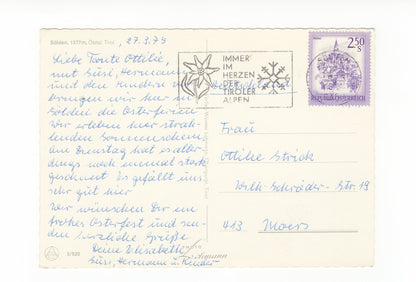 Sölden, 1377m, Ötztal, Tirol
27.3.78
Liebe Tante Ottilie,
mit Susi, Hermann
und den Kindern ver-
bringen wir hier in
Sölden die Osterferien
Wir erleben hier strah-
lenden Sonnenschein,
am Dienstag hat es aller-
dings noch einmal stark
geschneit. Es gefällt uns
sehr gut hier
Wir wünschen Dir ein
frohes Osterfest und sen-
den herzliche Grüße
Deine Elisabeth
Susi, Hermann u. Kinder
IMMER
IM
HERZEN
DER
TIROLER
ALPEN
2.50
S
REPUBLIK ÖSTERREICH
Frau
Ottilie Strick
Wilh.-Schröder-Str. 19
413 Moers